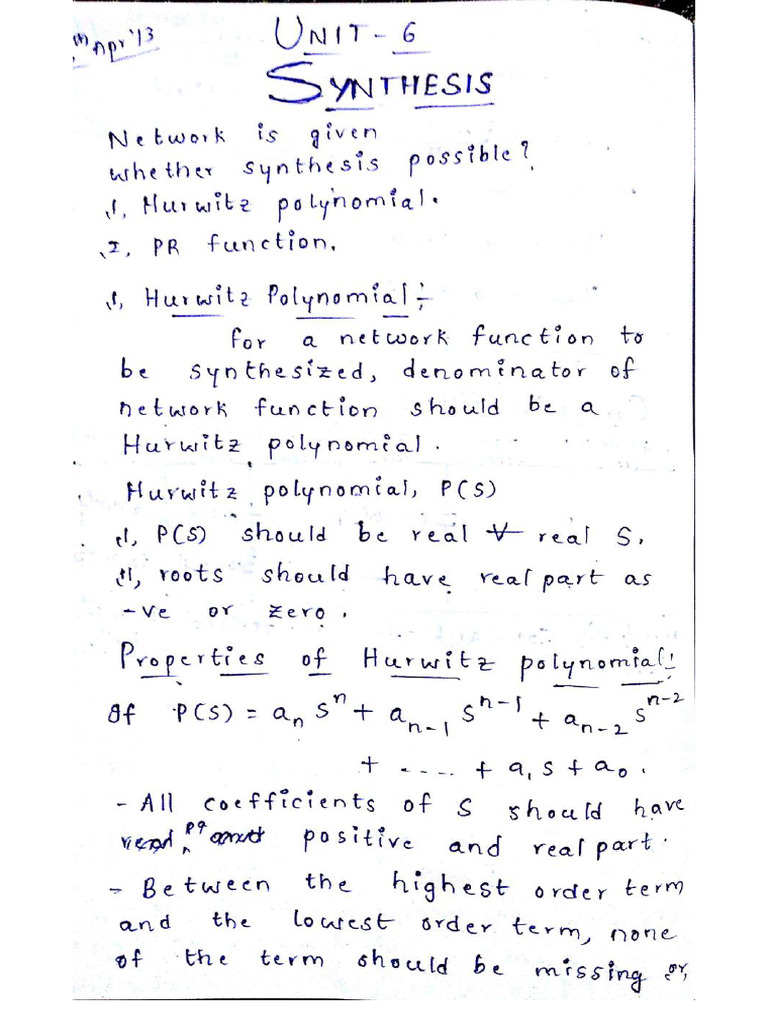 Apr'13
UNIT - 6
SYNTHESIS
Network is given
whether synthesis possible?
1, Hurwitz polynomial.
2, PR function.
1, Hurwitz Polynomial :-
for a network function to
be synthesized, denominator of
network function should be a
Hurwitz polynomial.
Hurwitz polynomial, P(S)
i, P(S) should be real ∀ real S.
ii, roots should have real part as
-ve or zero.
Properties of Hurwitz polynomial:
If P(S) = aₙ Sⁿ + aₙ₋₁ Sⁿ⁻¹ + aₙ₋₂ Sⁿ⁻²
+ ..... + a₁S + a₀.
- All coefficients of S should have
positive and real part.
- Between the highest order term
and the lowest order term, none
of the term should be missing or,